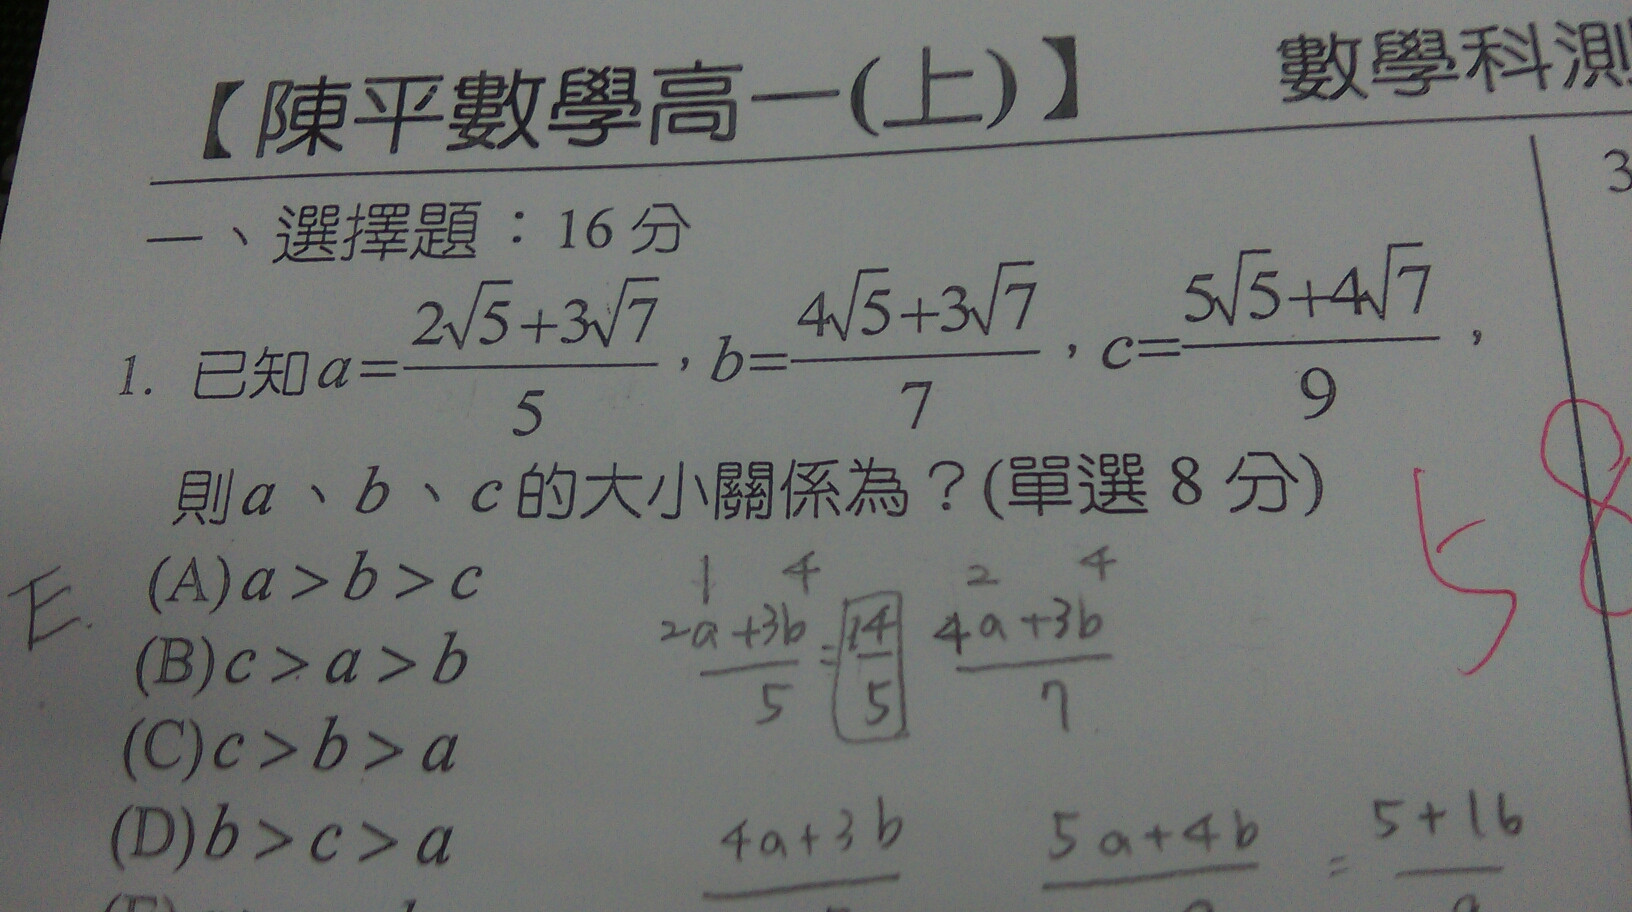 【陳平數學高一(上)】 數學科測
3
一、選擇題：16 分
1. 已知 a=\frac{2√5+3√7}{5}，b=\frac{4√5+3√7}{7}，c=\frac{5√5+4√7}{9}，
則 a、b、c 的大小關係為？(單選 8 分)
58
E.
(A) a > b > c
(B) c > a > b
(C) c > b > a
(D) b > c > a
1 4
2a+3b
5
=
14
5
2 4
4a+3b
7
4a+3b
5a+4b
=
5+16
9